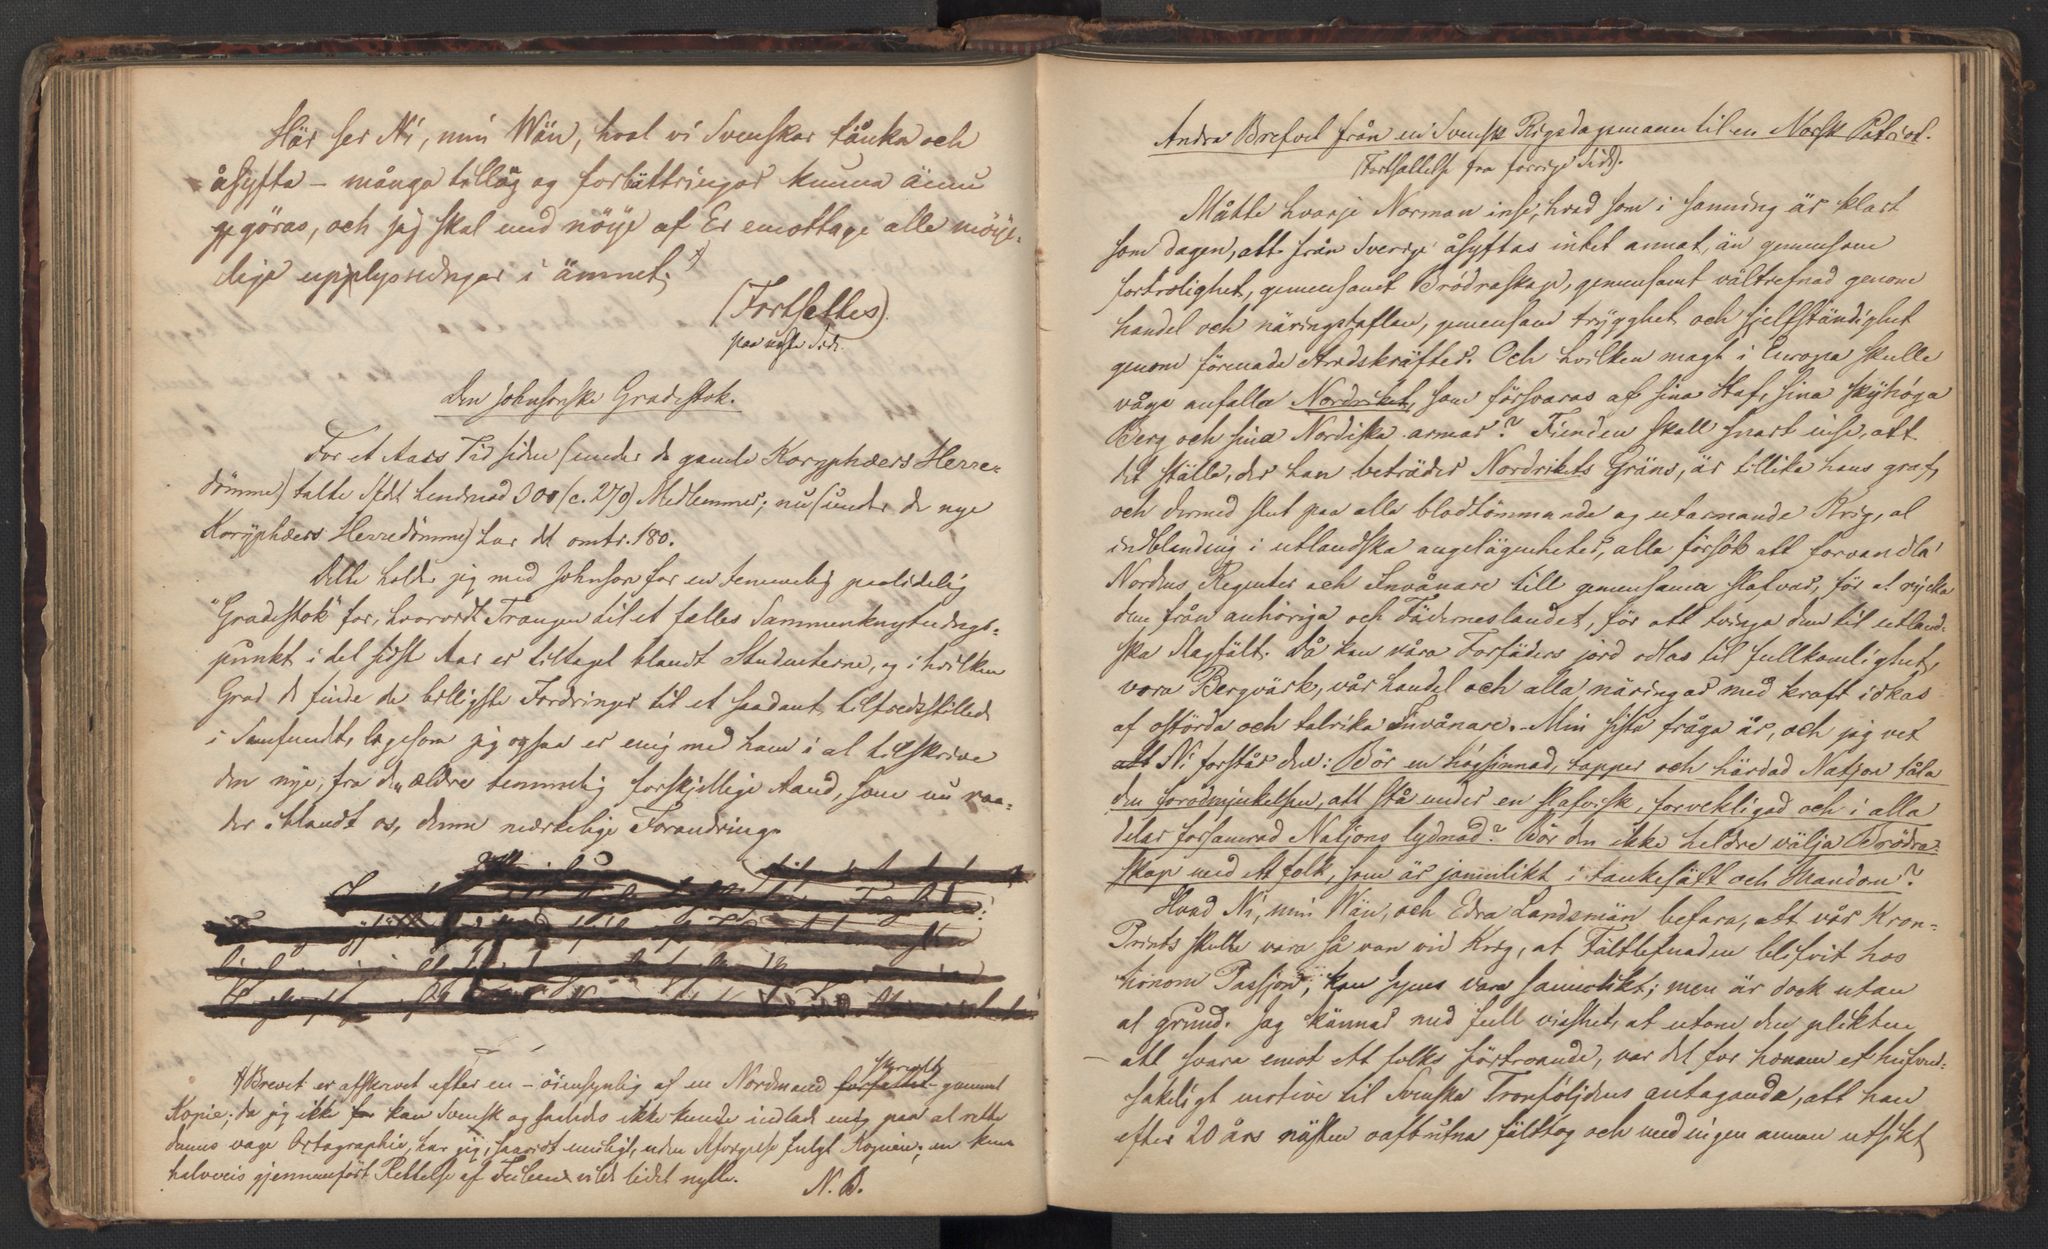 Här ser Ni, min Wän, hvad vi Svenskar tänka och
åsyfta – många tillæg og forbättringar kunna ännu
göras, och jag skal med nöije af Er emottage alle möije-
lige upplysningar i ämnet. *)
(Fortsættes)
paa næste Side.
Den Johnsonske Gradestok.
For et Aars Tid siden (under de gamle Koryphæers Herre-
dömme) talte Stdt. Lundmad 300 (c. 270) Medlemmer; nu (under de nye
Koryphæers Herredömme) har det omtr. 180.
Dette holder jeg med Johnson for en temmelig paalidelig
"Gradestok" for, hvorvidt Trangen til et fælles Sammenknytnings-
punkt i det sidste Aar er tiltaget blandt Studenterne, og i hvilken
Grad de finde de billigste Fordringer til et saadant tilfredsstillede
i Samfundet, ligesom jeg ogsaa er enig med ham i at tilskrive
den nye, fra den ældre temmelig forskjellige Aand, som nu raa-
der iblandt os, denne mærkelige Forandring.
*) Brevet er afskrevet efter en – öiensynlig af en Nordmand forfattet skrevet – gammel
Kopie; da jeg ikke for kan Svensk og saaledes ikke kunde indlade mig paa at rette
dennes vage Ortographie, har jeg, saavidt muligt, uden Afvigelse fulgt Kopien; en kun
halvveis gjennemfört Rettelse af Feilene vilde lidet nytte.
N. B.
Andra Brefvet från en Svensk Rigsdagsmann til en Norsk Patriot.
(Fortsættelse fra forrige Side).
Måtte hvarje Norman inse, hvad som i sanning är klart
som dagen, att från Sverige åsyftas intet annat, än gemensam
fortrolighet, gemensamt Brödraskap, gemensamt vältrefnad genom
handel och näringstaflan, gemensam trygghet och sjellständighet
genom förenade Stridskräfter. Och hvilken magt i Europa skulle
våga anfalla Nordriket, som försvaras af sina Haf, sina skyhöga
Berg och sina Nordiska armar? Fienden skall snart inse, att
det ställe, der han beträder Nordrikets Gräns, är tillika hans graf,
och dermed slut paa alla blodtömmande og utarmande Krig, al
indblandnig i utlandska angelägenheter, alla försök att forvandla
Nordens Regenter och Invånare till gemensama slafvar, för at rycka
dem från anhöriga och Fäderneslandet, för att tvinga dem til utland-
ska slagfält. Då kan våra Forfäders jord odlas til fullkomlighet,
vora Bergvärk, vår handel och alla näringar med kraft idkas
af ostörda och talrika Invånare. – Min sista fråga är, och jag vet
att Ni forstår den: Bör en högsinnad, tapper och härdad Natjon tåla
den forodmjukelsen, att stå under en slafvisk, forvekligad och i alla
delar forsamrad Natjons lydnad? Bör den ikke heldre välja Brödra-
skap med ett folk, som är jemnlikt i tankesätt och Mandom?
Hvad Ni, min Wän, och Edra Landsmän befara, att vår Kron-
Prints skulle vara så van vid Krig, at Fältlefnaden blifvit hos
honom Passjon, kan synes vara sannolikt; men är dock utan
al grund. Jag kännar med full visshet, at utom den plikten
– att svara emot ett folks förtroande, var det for honom et hufvud-
sakeligt motive til Svenska Tronföljdens antaganda, att han
efter 20 års nästen oafbrutna fälttog och med ingen annan utsikt